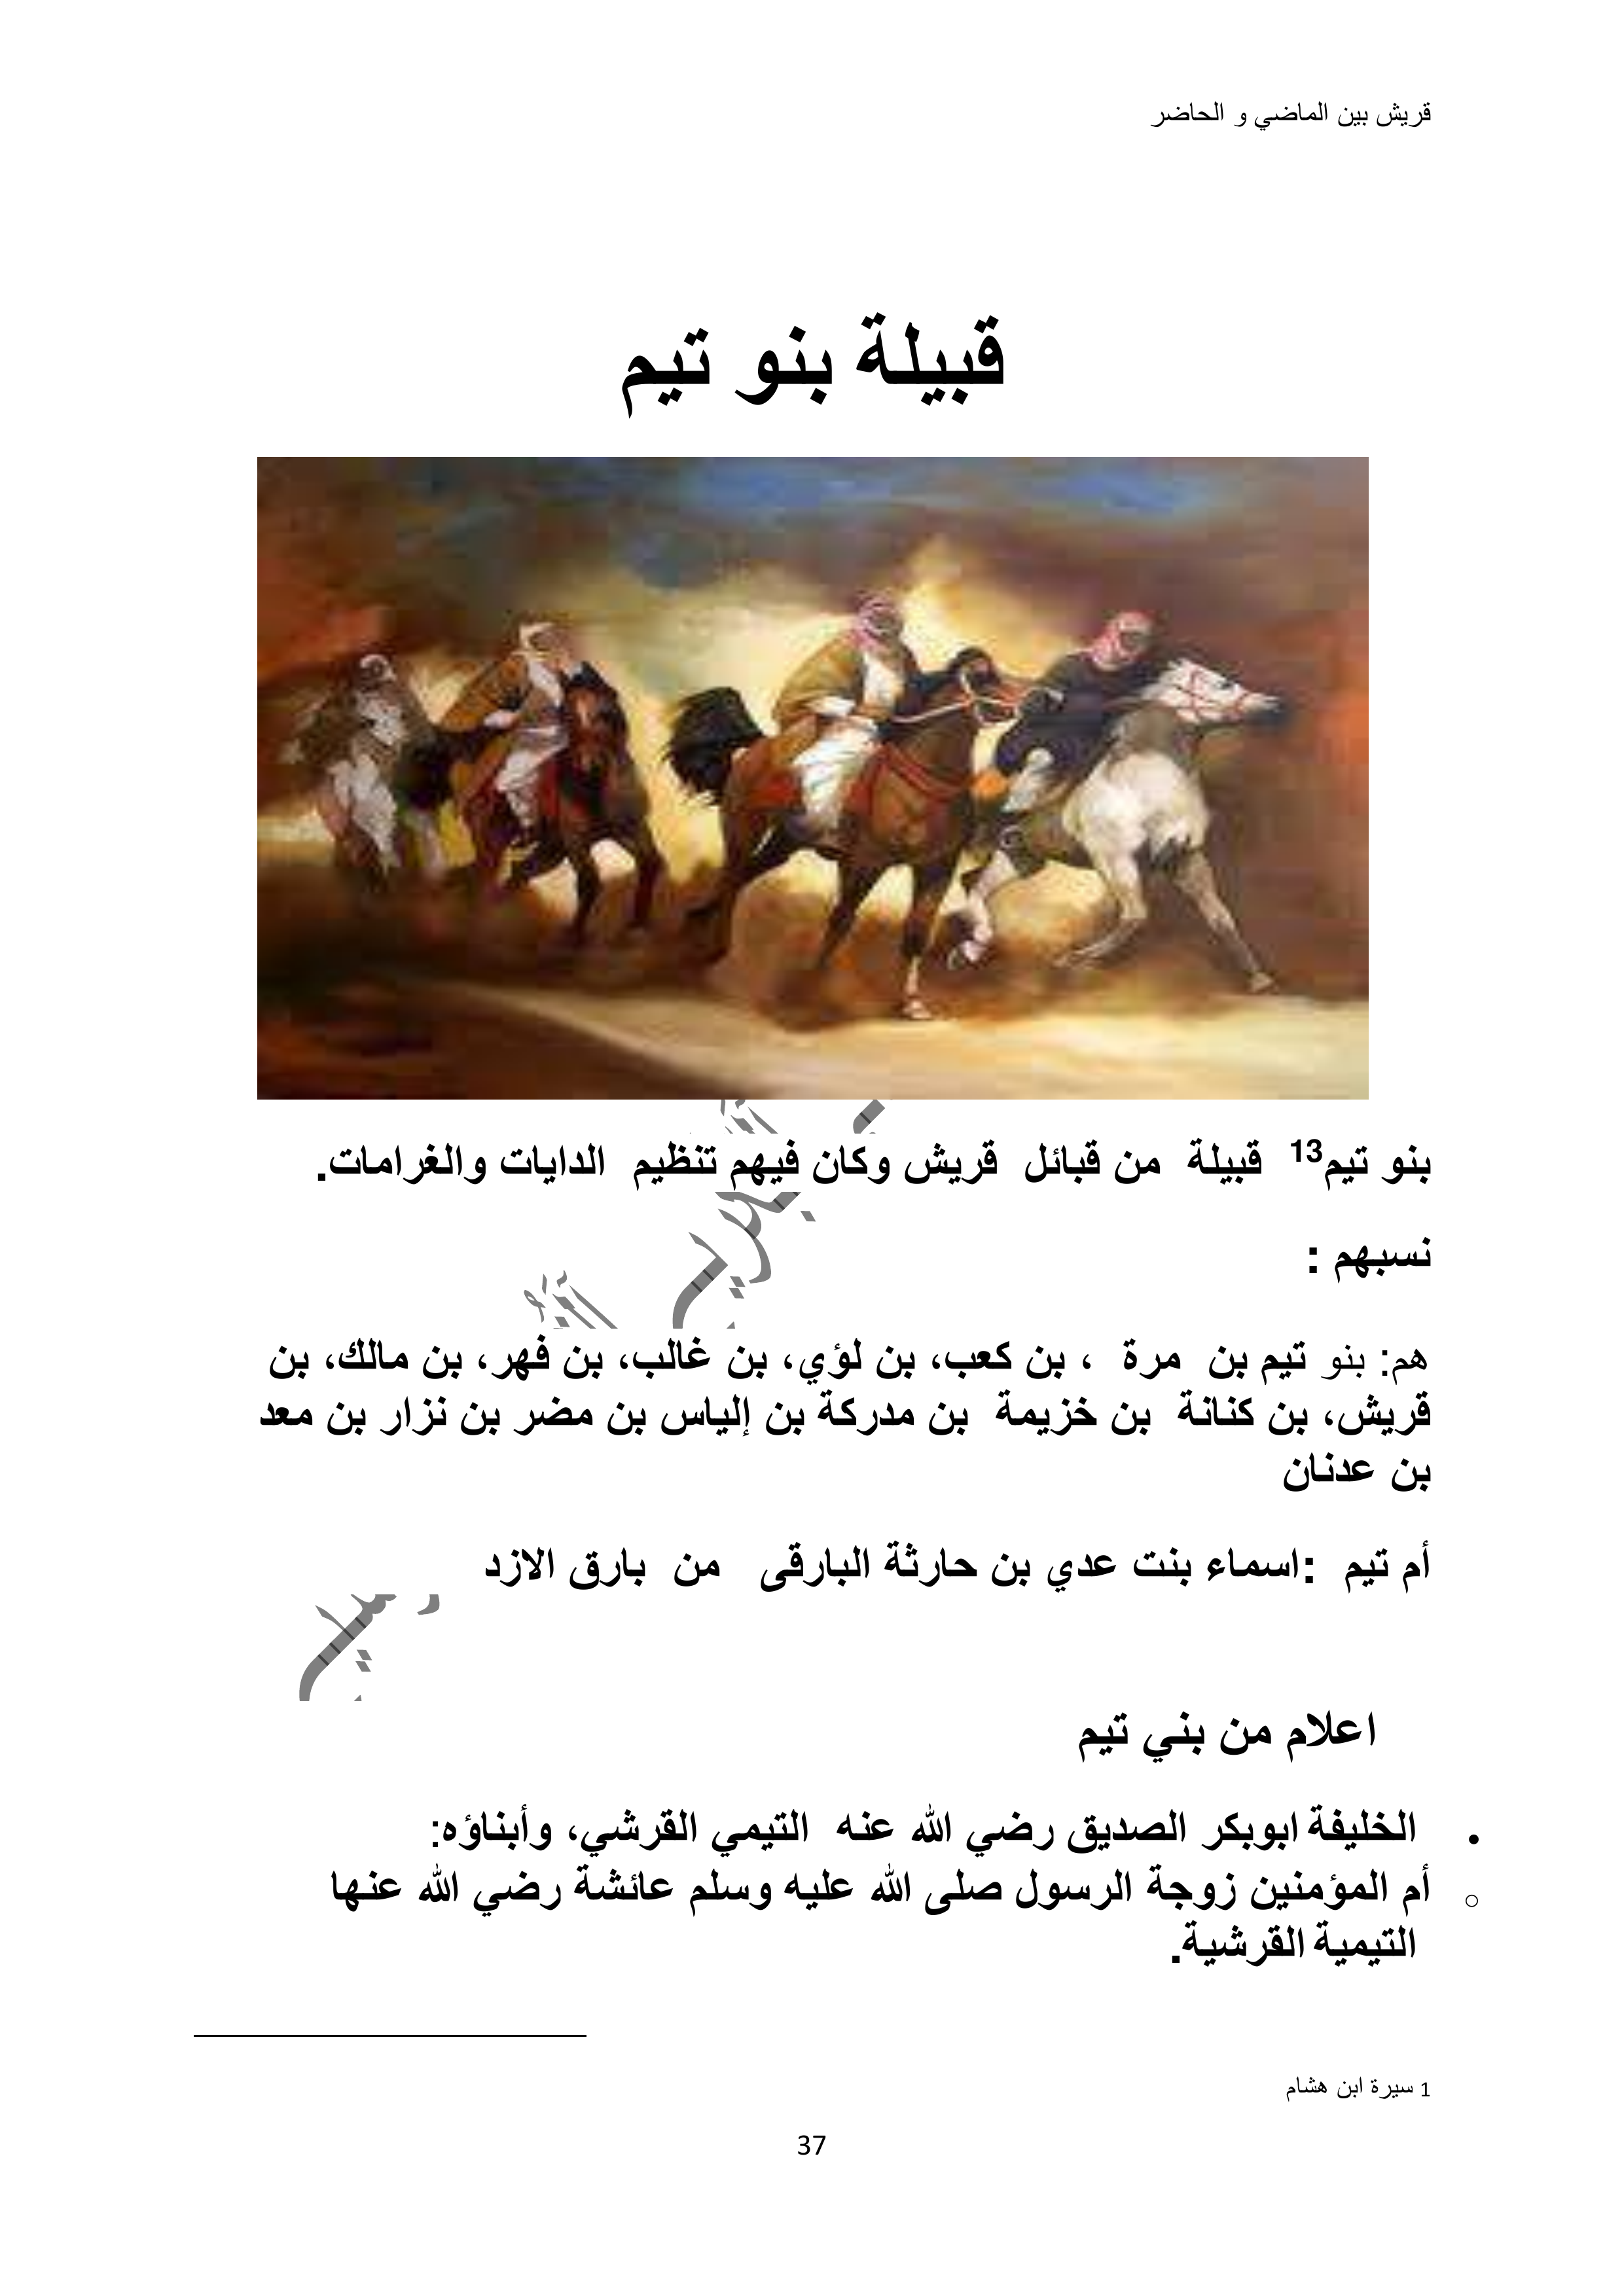 قريش بين الماضي و الحاضر
قبيلة بنو تيم
بنو تيم13 قبيلة من قبائل قريش وكان فيهم تنظيم الدايات والغرامات.
نسبهم :
هم: بنو تيم بن مرة ، بن كعب، بن لؤي، بن غالب، بن فهر، بن مالك، بن
قريش، بن كنانة بن خزيمة بن مدركة بن إلياس بن مضر بن نزار بن معد
بن عدنان
أم تيم :اسماء بنت عدي بن حارثة البارقى من بارق الازد
اعلام من بني تيم
• الخليفة ابوبكر الصديق رضي الله عنه التيمي القرشي، وأبناؤه:
○ أم المؤمنين زوجة الرسول صلى الله عليه وسلم عائشة رضي الله عنها
التيمية القرشية.
1 سيرة ابن هشام
37